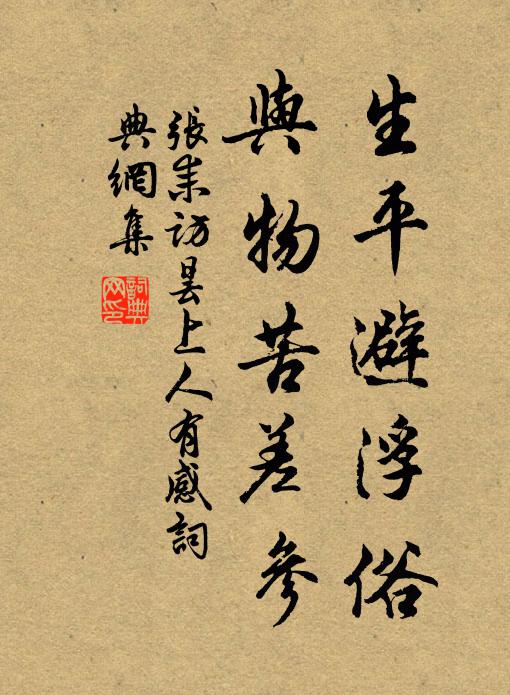 生平避浮俗
與物苦差參
張耒訪曇上人有感詞
典網集
詞典
网印